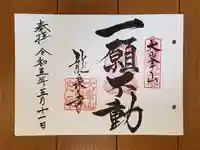 大峯山
一願不動
龍泉寺
奉拝 令和五年三月十一日